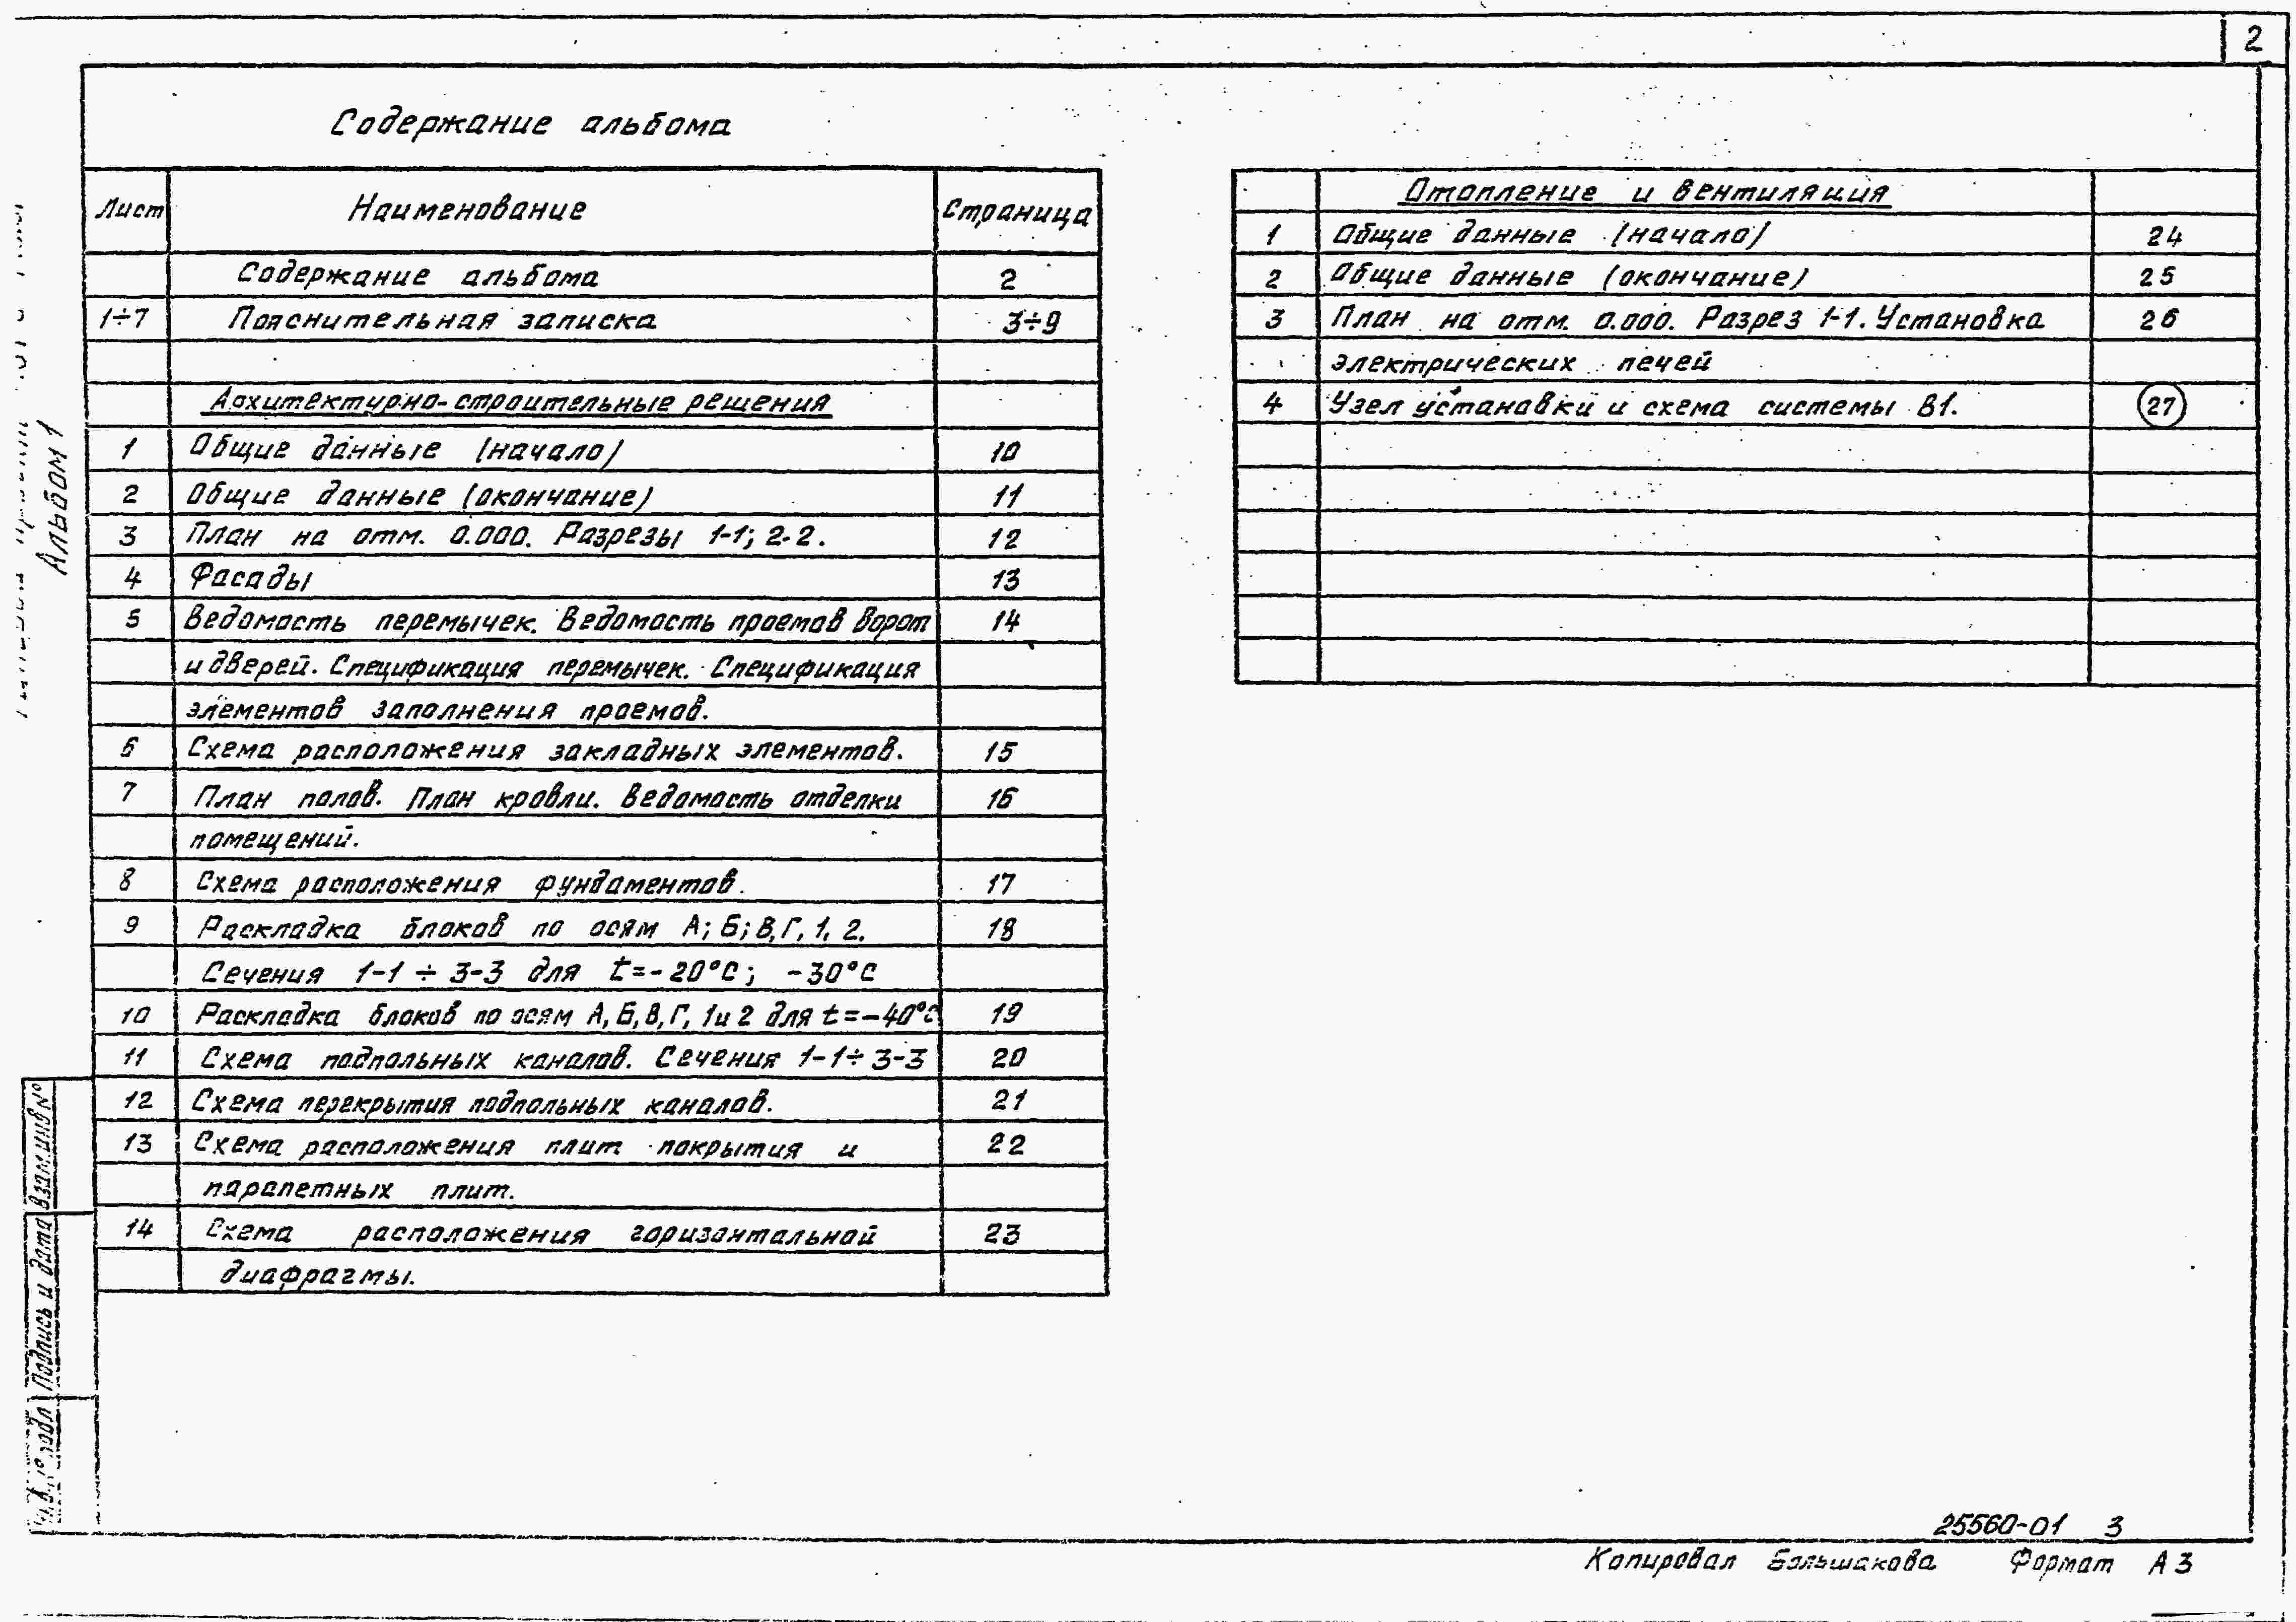 2
Содержание альбома
Лист Наименование Страница
Содержание альбома 2
1÷7 Пояснительная записка 3÷9
Архитектурно-строительные решения
1 Общие данные (начало) 10
2 Общие данные (окончание) 11
3 План на отм. 0.000. Разрезы 1-1; 2-2. 12
4 Фасады 13
5 Ведомость перемычек. Ведомость проемов ворот 14
и дверей. Спецификация перемычек. Спецификация
элементов заполнения проемов.
6 Схема расположения закладных элементов. 15
7 План полов. План кровли. Ведомость отделки 16
помещений.
8 Схема расположения фундаментов. 17
9 Раскладка блоков по осям А; Б; В, Г, 1, 2. 18
Сечения 1-1 ÷ 3-3 для t=-20°C; -30°C
10 Раскладка блоков по осям А, Б, В, Г, 1 и 2 для t=-40°C 19
11 Схема подпольных каналов. Сечения 1-1÷3-3 20
12 Схема перекрытия подпольных каналов. 21
13 Схема расположения плит покрытия и 22
парапетных плит.
14 Схема расположения горизонтальной 23
диафрагмы.
Отопление и вентиляция
1 Общие данные (начало) 24
2 Общие данные (окончание) 25
3 План на отм. 0.000. Разрез 1-1. Установка 26
электрических печей
4 Узел установки и схема системы В1. 27
Альбом 1
Взам.инв№
Подпись и дата
25560-01 3
Копировал Большакова Формат А3